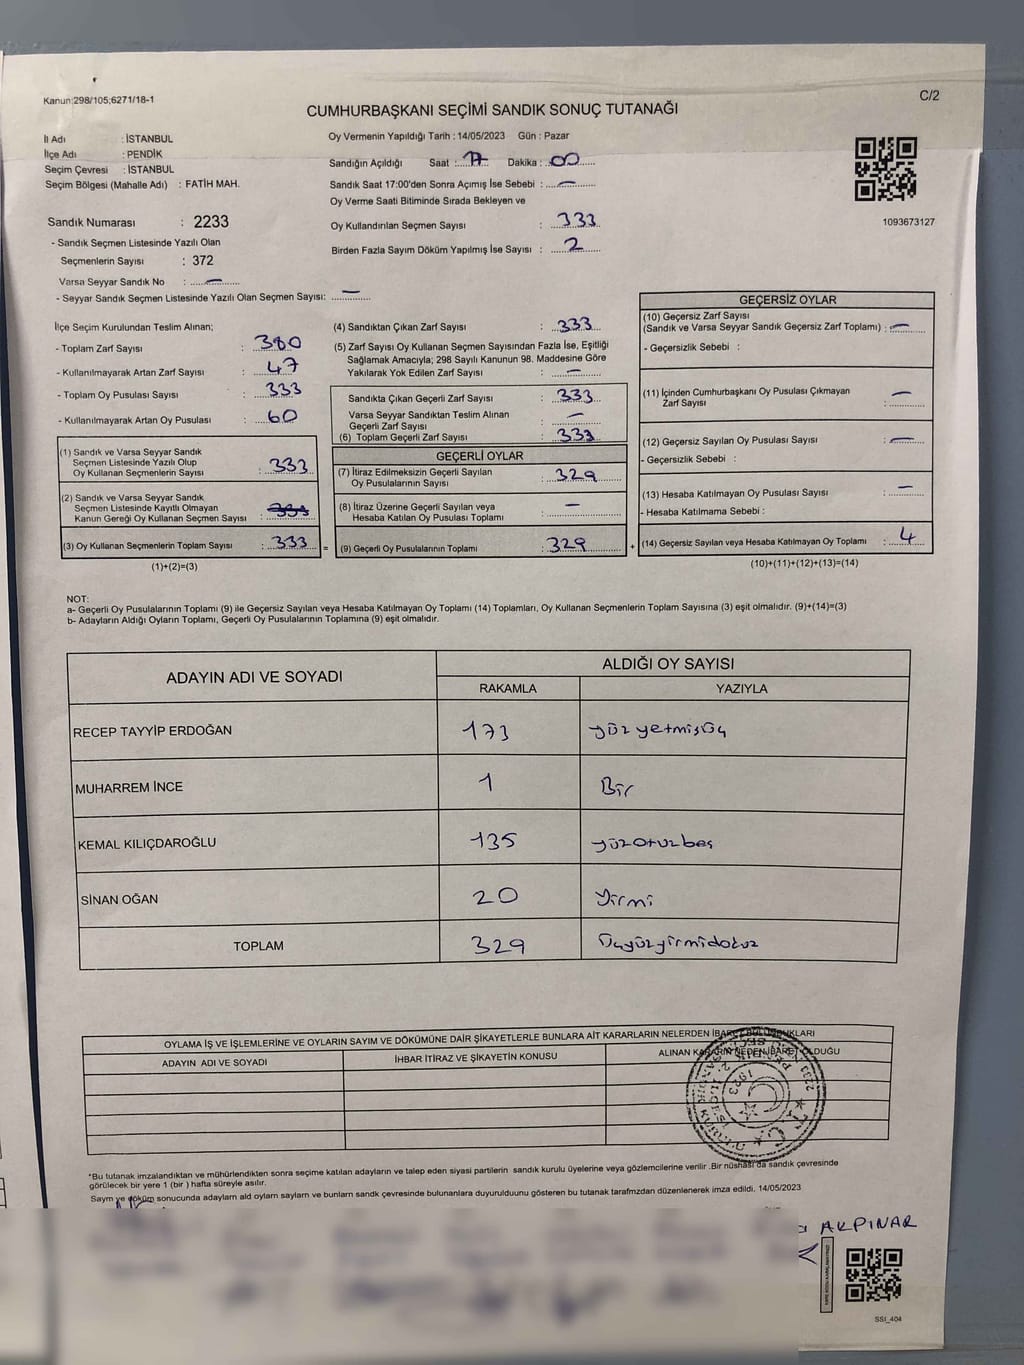 Kanun:298/105;6271/18-1
C/2
CUMHURBAŞKANI SEÇİMİ SANDIK SONUÇ TUTANAĞI
İl Adı : İSTANBUL
İlçe Adı : PENDİK
Seçim Çevresi : İSTANBUL
Seçim Bölgesi (Mahalle Adı) : FATİH MAH.
Sandık Numarası : 2233
- Sandık Seçmen Listesinde Yazılı Olan
Seçmenlerin Sayısı : 372
Varsa Seyyar Sandık No : —
- Seyyar Sandık Seçmen Listesinde Yazılı Olan Seçmen Sayısı: —
Oy Vermenin Yapıldığı Tarih : 14/05/2023 Gün : Pazar
Sandığın Açıldığı Saat : 17 Dakika : 00
Sandık Saat 17:00'den Sonra Açımış İse Sebebi : —
Oy Verme Saati Bitiminde Sırada Bekleyen ve
Oy Kullandırılan Seçmen Sayısı : 333
Birden Fazla Sayım Döküm Yapılmış İse Sayısı : 2
1093673127
İlçe Seçim Kurulundan Teslim Alınan;
- Toplam Zarf Sayısı : 380
- Kullanılmayarak Artan Zarf Sayısı : 47
- Toplam Oy Pusulası Sayısı : 333
- Kullanılmayarak Artan Oy Pusulası : 60
(1) Sandık ve Varsa Seyyar Sandık
Seçmen Listesinde Yazılı Olup
Oy Kullanan Seçmenlerin Sayısı : 333
(2) Sandık ve Varsa Seyyar Sandık
Seçmen Listesinde Kayıtlı Olmayan
Kanun Gereği Oy Kullanan Seçmen Sayısı :
(3) Oy Kullanan Seçmenlerin Toplam Sayısı : 333
(1)+(2)=(3)
(4) Sandıktan Çıkan Zarf Sayısı : 333
(5) Zarf Sayısı Oy Kullanan Seçmen Sayısından Fazla İse, Eşitliği
Sağlamak Amacıyla; 298 Sayılı Kanunun 98. Maddesine Göre
Yakılarak Yok Edilen Zarf Sayısı : —
Sandıkta Çıkan Geçerli Zarf Sayısı : 333
Varsa Seyyar Sandıktan Teslim Alınan
Geçerli Zarf Sayısı : —
(6) Toplam Geçerli Zarf Sayısı : 333
GEÇERLİ OYLAR
(7) İtiraz Edilmeksizin Geçerli Sayılan
Oy Pusulalarının Sayısı : 329
(8) İtiraz Üzerine Geçerli Sayılan veya
Hesaba Katılan Oy Pusulası Toplamı : —
= (9) Geçerli Oy Pusulalarının Toplamı : 329
GEÇERSİZ OYLAR
(10) Geçersiz Zarf Sayısı
(Sandık ve Varsa Seyyar Sandık Geçersiz Zarf Toplamı) : —
- Geçersizlik Sebebi :
(11) İçinden Cumhurbaşkanı Oy Pusulası Çıkmayan
Zarf Sayısı : —
(12) Geçersiz Sayılan Oy Pusulası Sayısı : —
- Geçersizlik Sebebi :
(13) Hesaba Katılmayan Oy Pusulası Sayısı : —
- Hesaba Katılmama Sebebi :
+ (14) Geçersiz Sayılan veya Hesaba Katılmayan Oy Toplamı : 4
(10)+(11)+(12)+(13)=(14)
NOT:
a- Geçerli Oy Pusulalarının Toplamı (9) ile Geçersiz Sayılan veya Hesaba Katılmayan Oy Toplamı (14) Toplamları, Oy Kullanan Seçmenlerin Toplam Sayısına (3) eşit olmalıdır. (9)+(14)=(3)
b- Adayların Aldığı Oyların Toplamı, Geçerli Oy Pusulalarının Toplamına (9) eşit olmalıdır.
ADAYIN ADI VE SOYADI
ALDIĞI OY SAYISI
RAKAMLA YAZIYLA
RECEP TAYYİP ERDOĞAN 173 yüzyetmişüç
MUHARREM İNCE 1 Bir
KEMAL KILIÇDAROĞLU 135 yüzotuzbeş
SİNAN OĞAN 20 Yirmi
TOPLAM 329 Üçyüzyirmidokuz
OYLAMA İŞ VE İŞLEMLERİNE VE OYLARIN SAYIM VE DÖKÜMÜNE DAİR ŞİKAYETLERLE BUNLARA AİT KARARLARIN NELERDEN İBARET BULUNDUKLARI
ADAYIN ADI VE SOYADI İHBAR İTİRAZ VE ŞİKAYETİN KONUSU ALINAN KARARIN NEDEN İBARET OLDUĞU
*Bu tutanak imzalandıktan ve mühürlendikten sonra seçime katılan adayların ve talep eden siyasi partilerin sandık kurulu üyelerine veya gözlemcilerine verilir .Bir nüshası da sandık çevresinde
görülecek bir yere 1 (bir ) hafta süreyle asılır.
Saym ve döküm sonucunda adaylarn ald oylarn saylarn ve bunlarn sandk çevresinde bulunanlara duyurulduunu gösteren bu tutanak tarafmzdan düzenlenerek imza edildi, 14/05/2023
AKPINAR
SSI_404